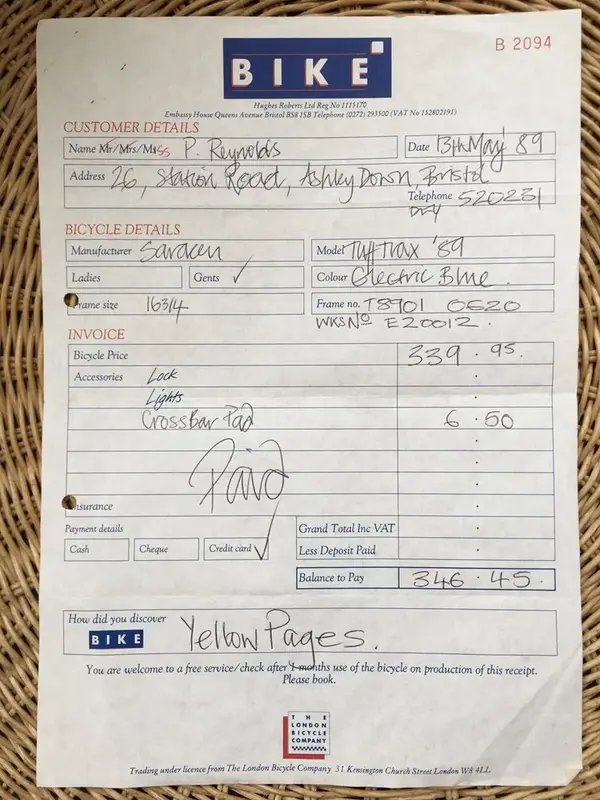 B 2094
BIKE
Hughes Roberts Ltd Reg No 1115170
Embassy House Queens Avenue Bristol BS8 1SB Telephone (0272) 293500 (VAT No 152802191)
CUSTOMER DETAILS
Name Mr/Mrs/Miss P. Reynolds Date 13th May 89
Address 26, Station Road, Ashley Down, Bristol
Telephone 520231
Day
BICYCLE DETAILS
Manufacturer Saracen Model Tufftrax '89
Ladies Gents ✓ Colour Electric Blue.
Frame size 16 3/4 Frame no. T8901 0620
WKS No E20012.
INVOICE
Bicycle Price 339.95
Accessories Lock
Lights
CrossBar Pad 6.50
Paid
Insurance
Payment details Grand Total Inc VAT
Cash Cheque Credit card ✓ Less Deposit Paid
Balance to Pay 346.45
How did you discover
BIKE Yellow Pages.
You are welcome to a free service/check after 1 months use of the bicycle on production of this receipt.
Please book.
THE
LONDON
BICYCLE
COMPANY
Trading under licence from The London Bicycle Company 31 Kensington Church Street London W8 4LL